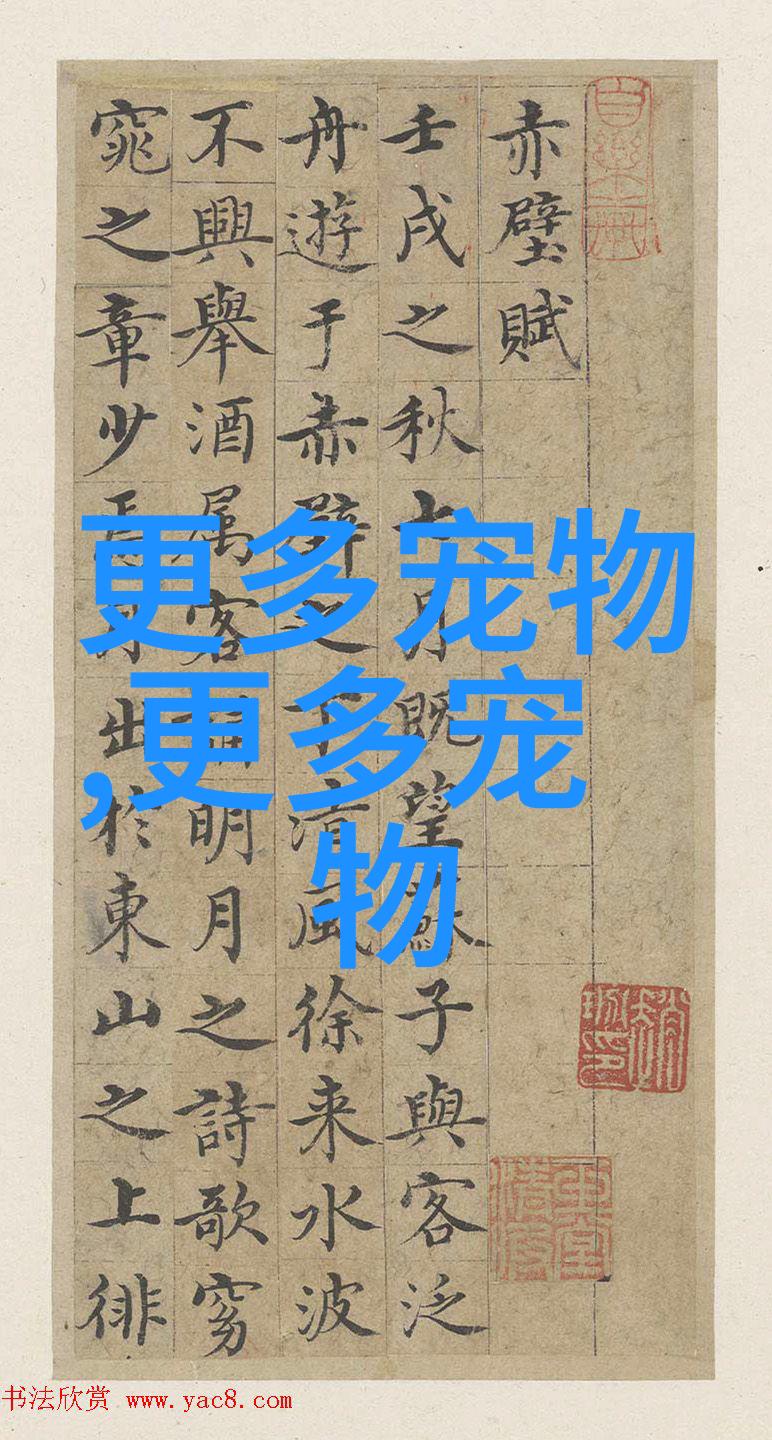 赤壁賦
壬戌之秋七月既望蘇子與客泛
舟遊于赤壁之下清風徐来水波
不興舉酒属客明月之詩歌窈
窕之章少焉月出於東山之上徘
更多宠物
,更多宠
物
书法欣赏 www.yac8.com